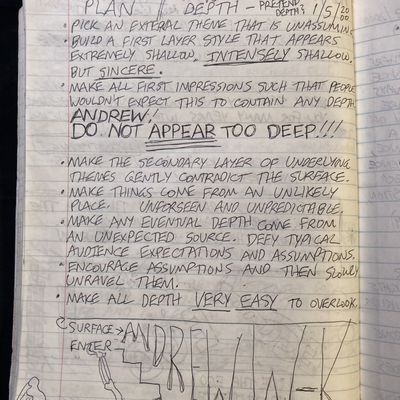 PLAN / DEPTH - PRETEND DEPTH? 1/5/2000
• PICK AN EXTERAL THEME THAT IS UNASSUMING
• BUILD A FIRST LAYER STYLE THAT APPEARS
EXTREMELY SHALLOW, INTENSELY SHALLOW.
BUT SINCERE.
• MAKE ALL FIRST IMPRESSIONS SUCH THAT PEOPLE
WOULDN'T EXPECT THIS TO CONTAIN ANY DEPTH.
ANDREW!
DO NOT APPEAR TOO DEEP!!!
• MAKE THE SECONDARY LAYER OF UNDERLYING
THEMES GENTLY CONTRADICT THE SURFACE.
• MAKE THINGS COME FROM AN UNLIKELY
PLACE. UNFORSEEN AND UNPREDICTABLE.
• MAKE ANY EVENTUAL DEPTH COME FROM
AN UNEXPECTED SOURCE. DEFY TYPICAL
AUDIENCE EXPECTATIONS AND ASSUMPTIONS.
• ENCOURAGE ASSUMPTIONS AND THEN SLOWLY
UNRAVEL THEM.
• MAKE ALL DEPTH VERY EASY TO OVERLOOK.
SURFACE→ ANDREW W.K.
ENTER→